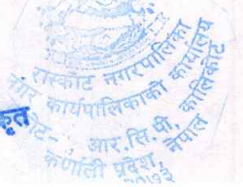 रास्कोट नगरपालिका
नगर कार्यपालिकाको कार्यालय
आर.सि.पी., कालिकोट
कर्णाली प्रदेश, नेपाल
२०७३
कृत